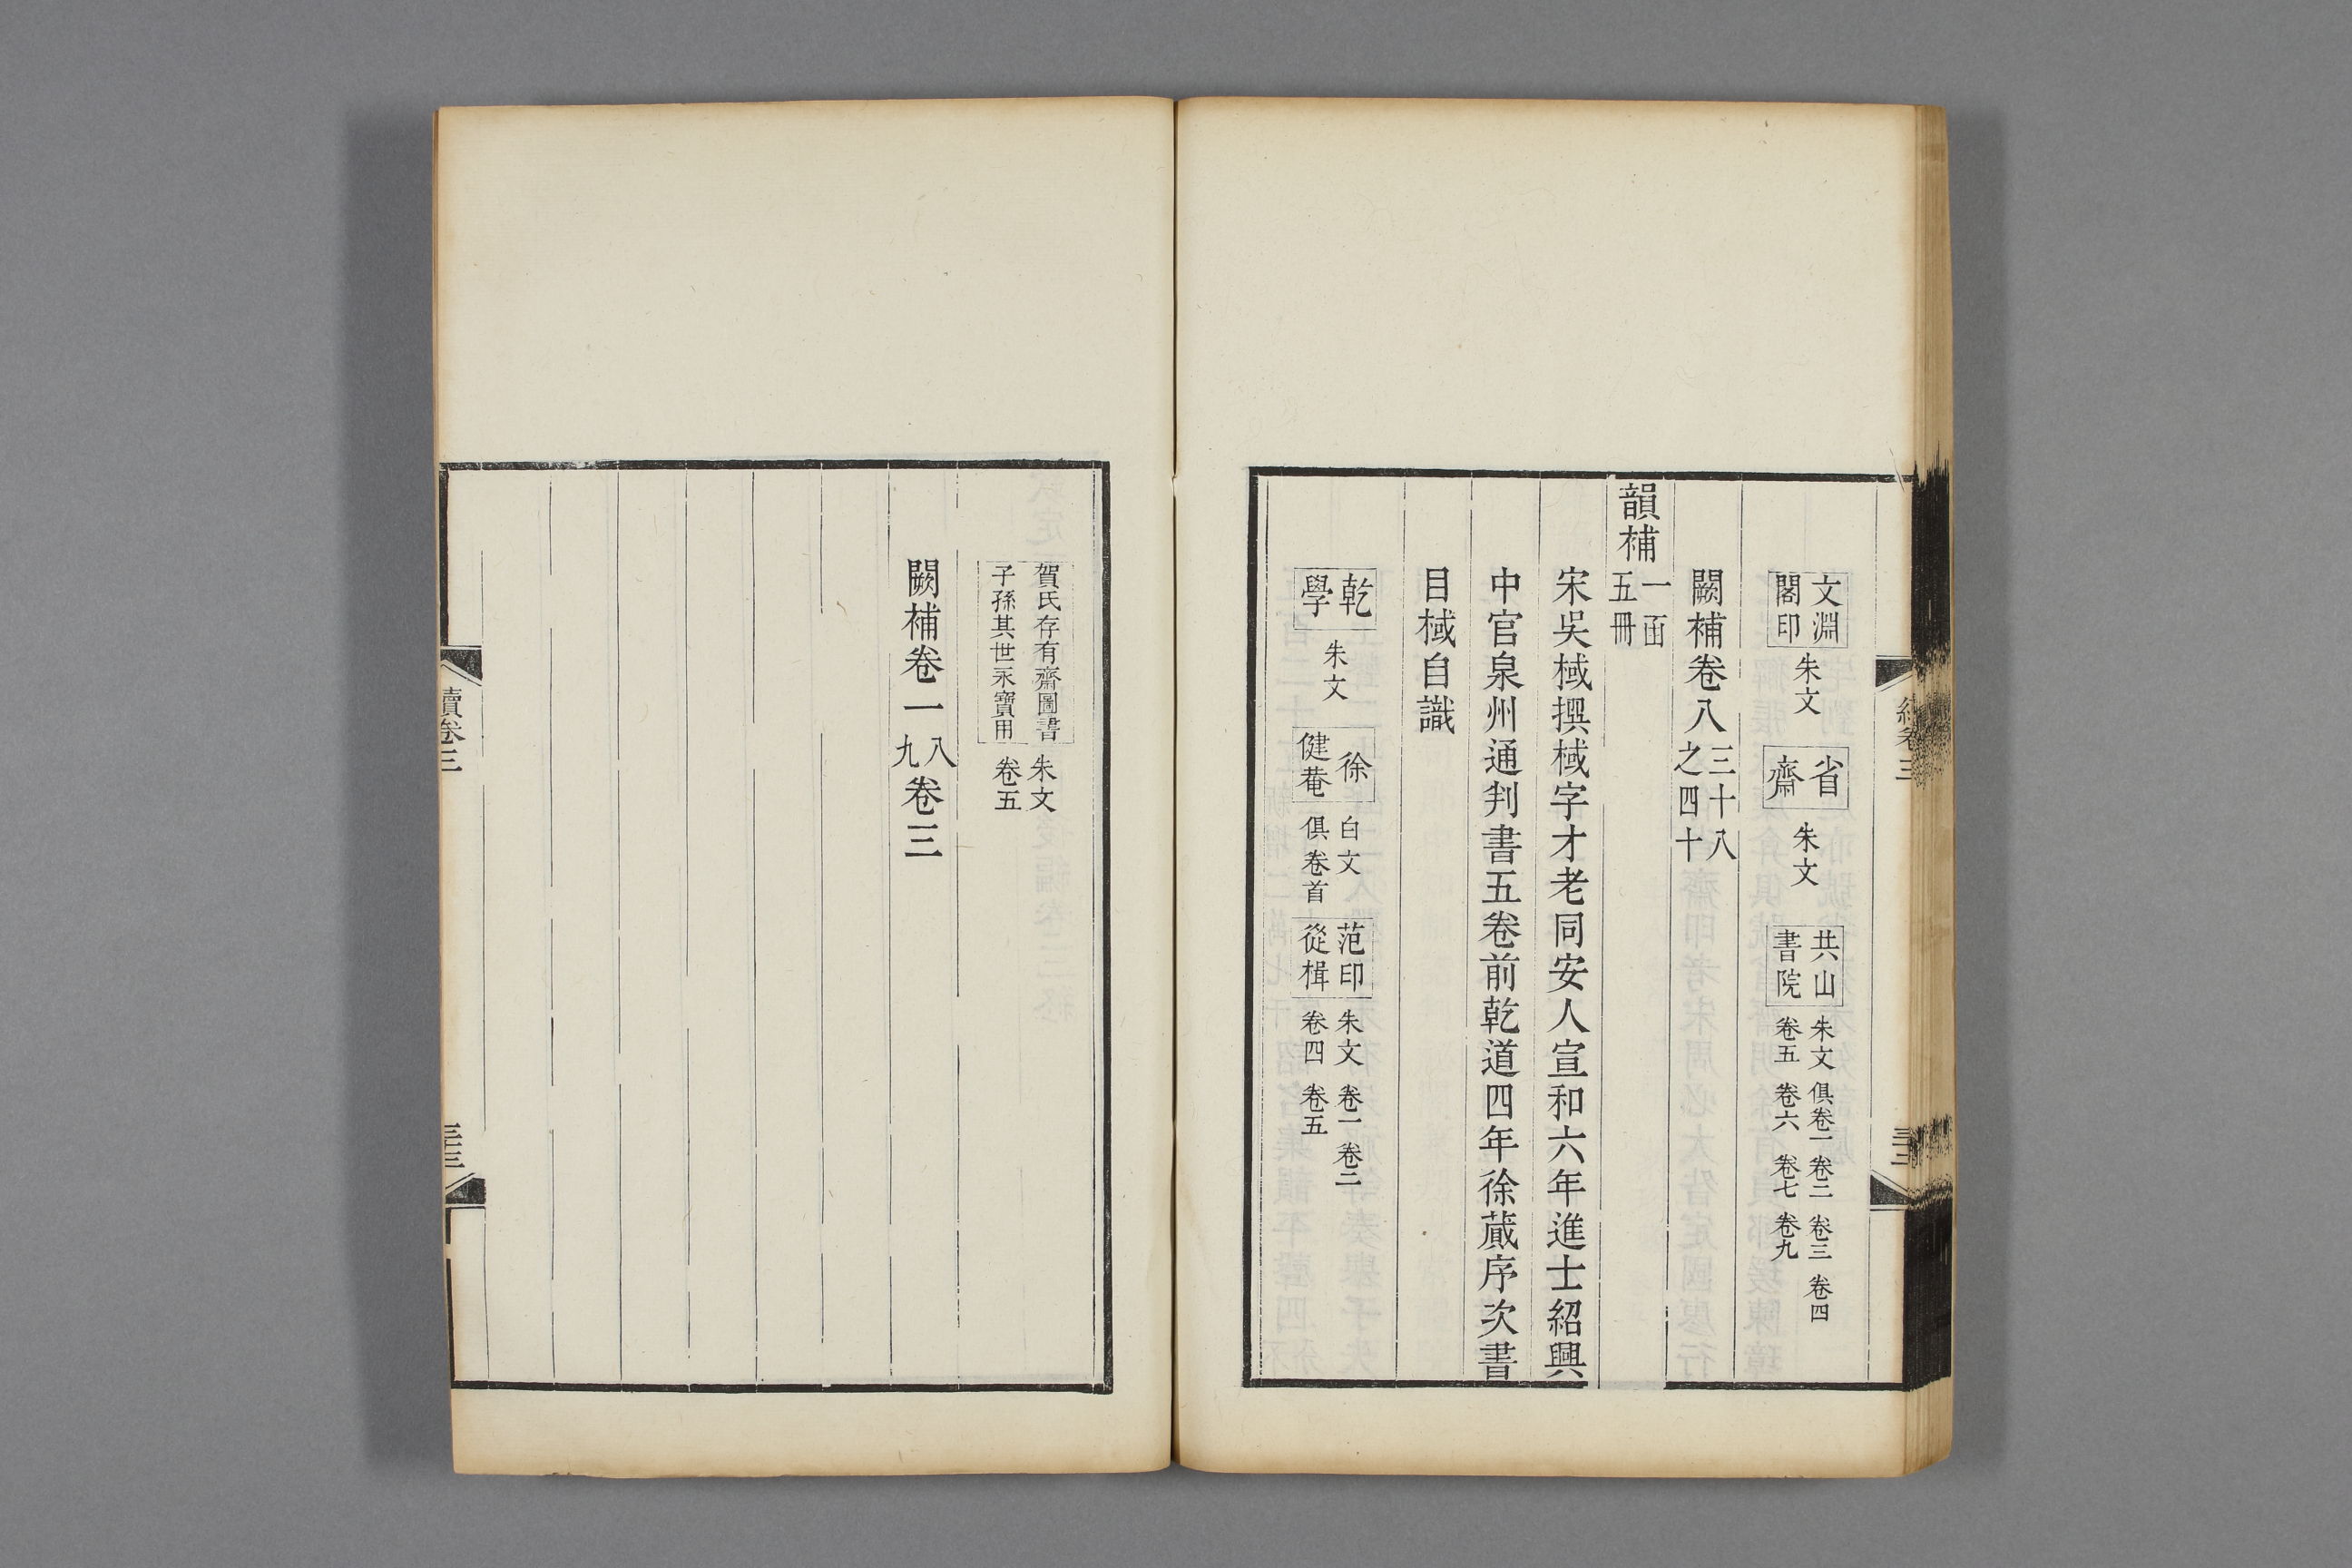 文淵閣印 朱文 省齋 朱文 共山書院 朱文 俱卷一 卷二 卷三 卷四 卷五 卷六 卷七 卷九
闕補卷八 三十八之四十
韻補 一函五冊
宋吳棫撰棫字才老同安人宣和六年進士紹興
中官泉州通判書五卷前乾道四年徐蕆序次書
目棫自識
乾學 朱文 徐健菴 白文 俱卷首 范印從楫 朱文 卷一 卷二 卷四 卷五
賀氏存有齋圖書子孫其世永寶用 朱文 卷五
闕補卷一 八九 卷三
續卷三